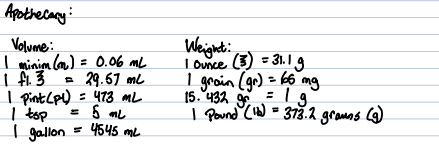 Apothecary:
Volume:
1 minim (m) = 0.06 mL
1 fl. ℥ = 29.57 mL
1 pint (pt) = 473 mL
1 tsp = 5 mL
1 gallon = 4545 mL
Weight:
1 ounce (℥) = 31.1 g
1 grain (gr) = 66 mg
15. 432 gr = 1 g
1 Pound (lb) = 373.2 grams (g)